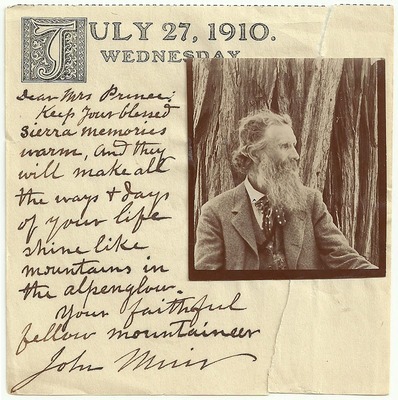 JULY 27, 1910.
WEDNESDAY
Dear Mrs Prince:
Keep your blessed
Sierra memories
warm, and they
will make all
the ways & days
of your life
shine like
mountains in
the alpenglow.
Your faithful
fellow mountaineer
John Muir